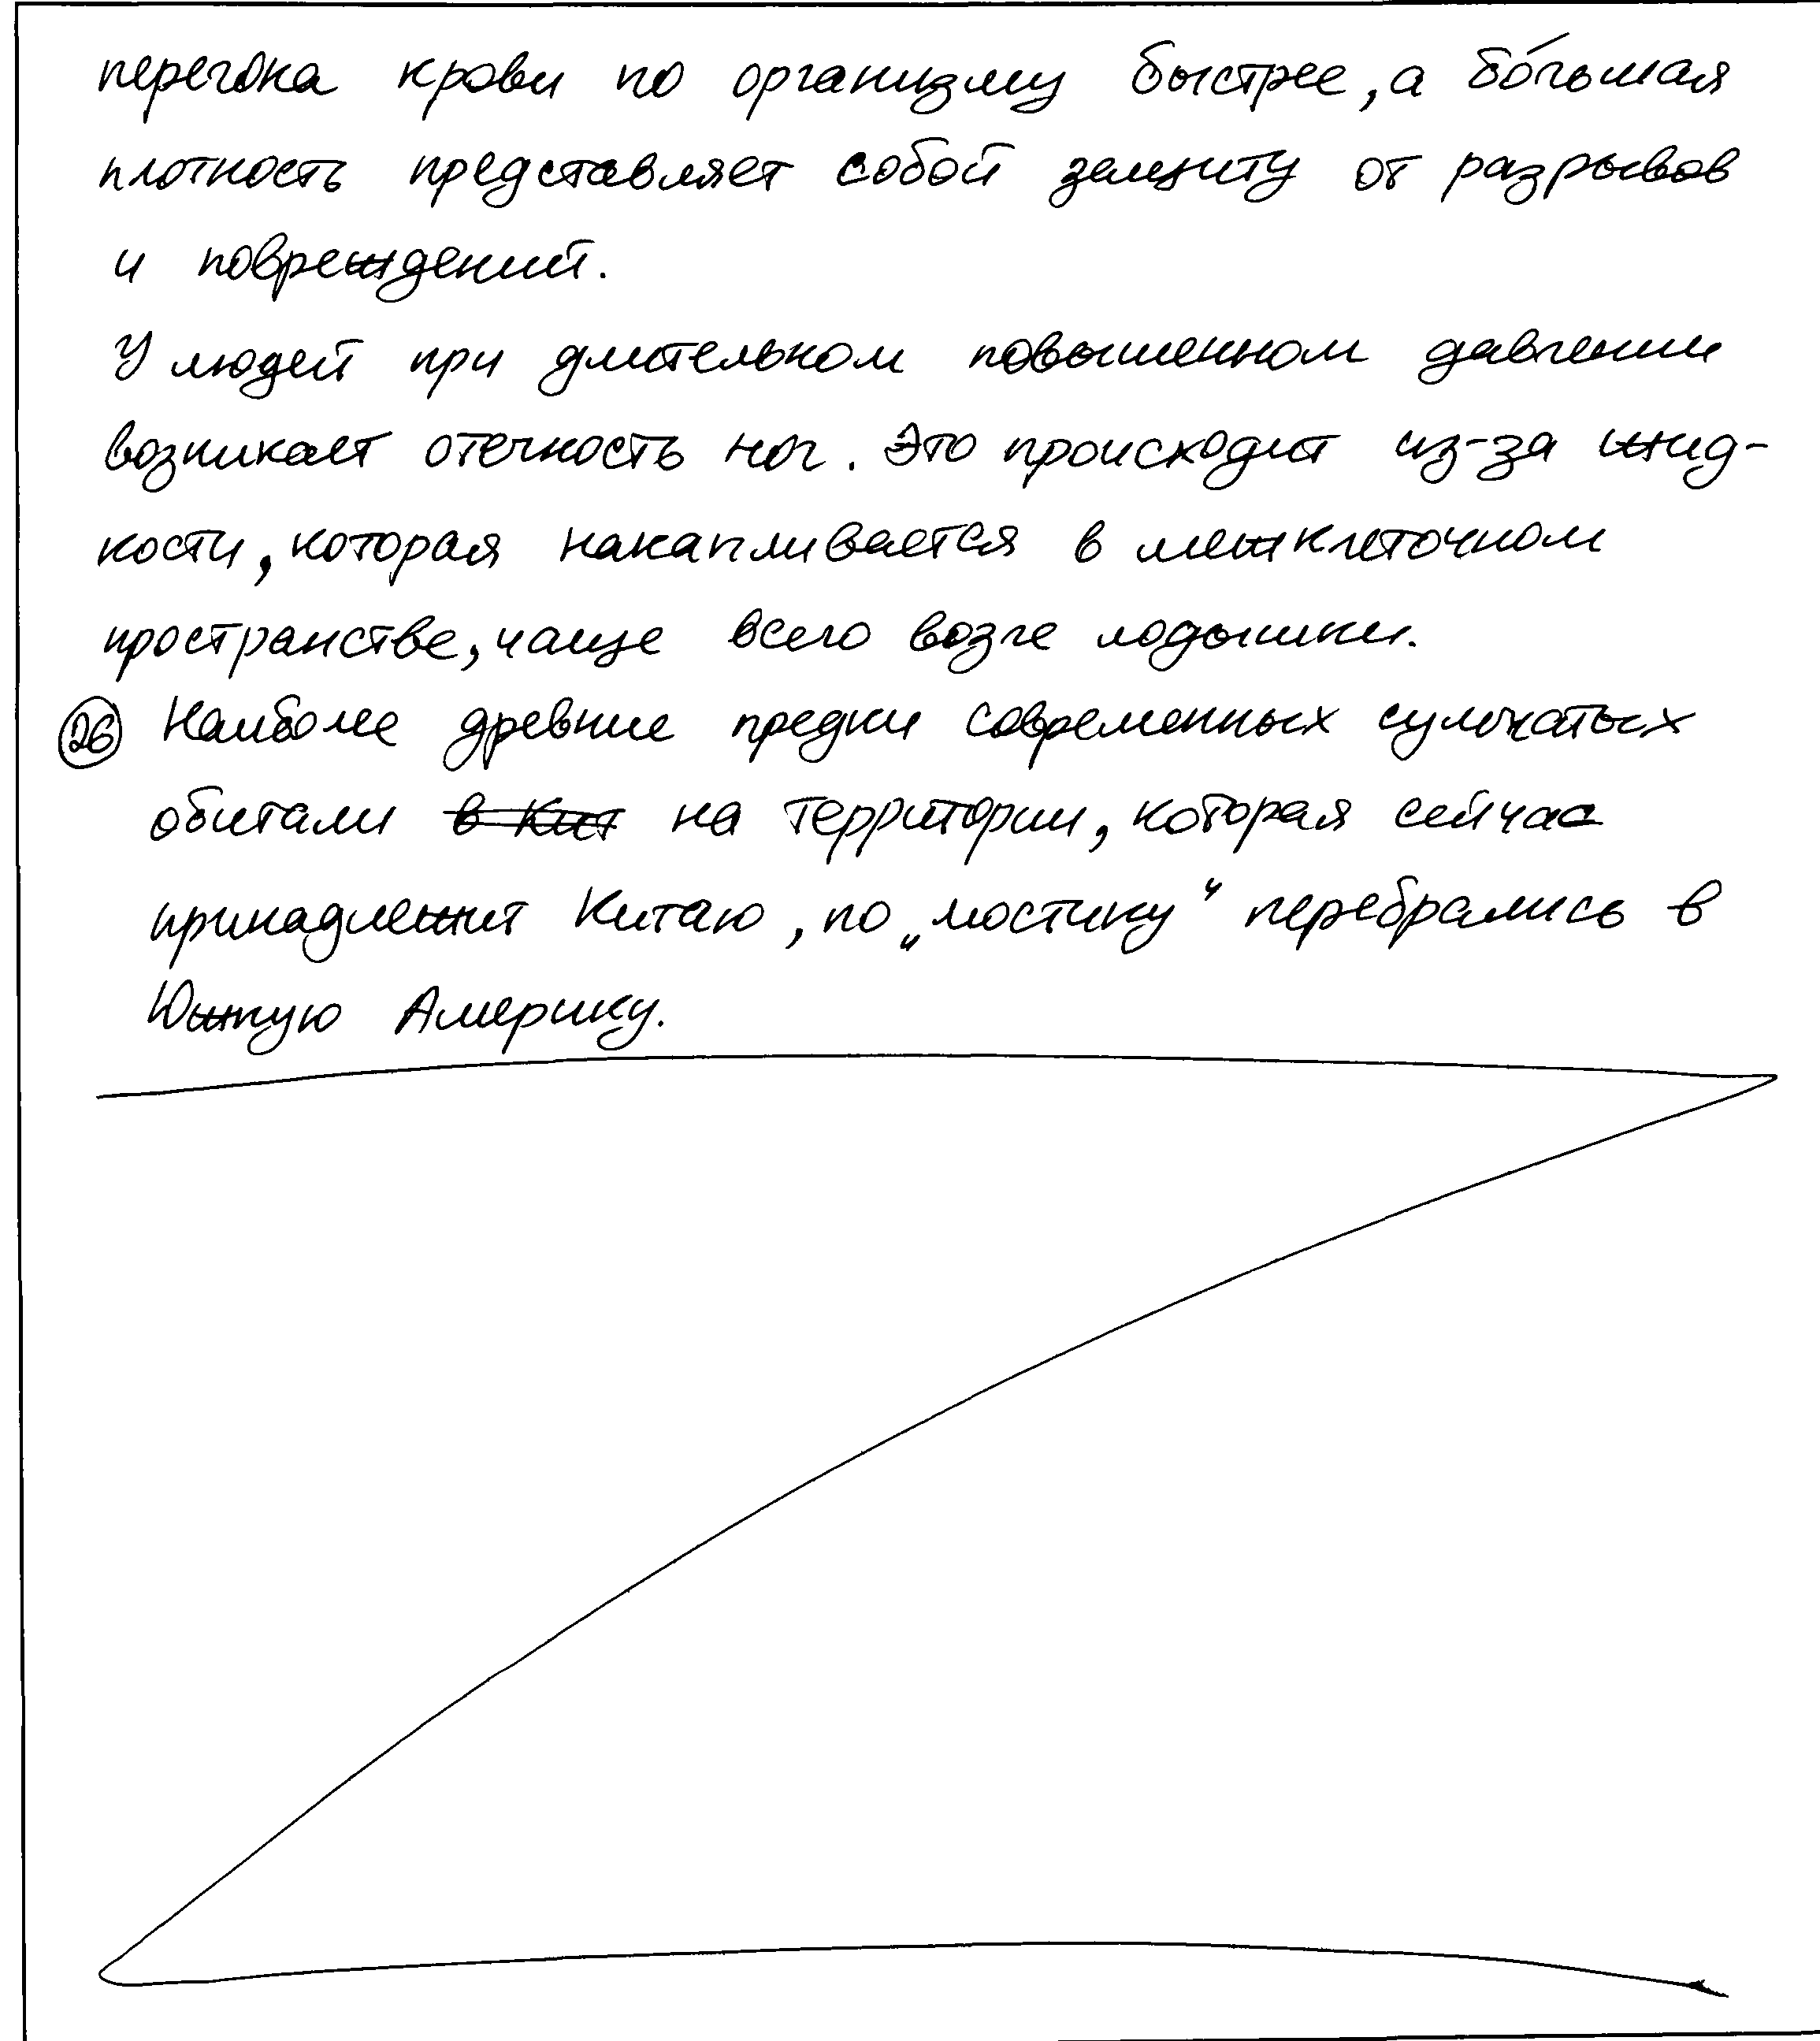 перегонка крови по организму быстрее, а бо́льшая
плотность представляет собой защиту от разрывов
и повреждений.
У людей при длительном повышенном давлении
возникает отечность ног. Это происходит из-за жид-
кости, которая накапливается в межклеточном
пространстве, чаще всего возле лодыжки.
26 Наиболее древние предки современных сумчатых
обитали в Кит на территории, которая сейчас
принадлежит Китаю, по „мостику“ перебрались в
Южную Америку.